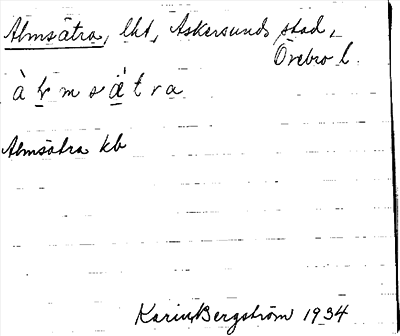 Almsätra, lht, Askersunds stad,
Örebro l.
à l m s ä́ t r a
Almsätra kb
Karin Bergström 1934